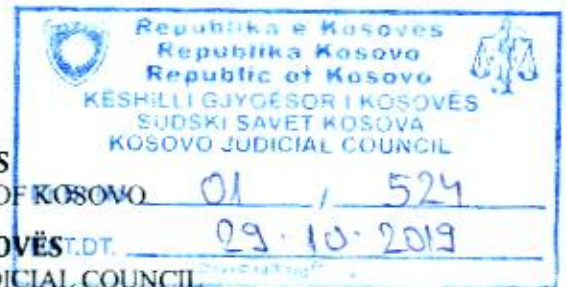 Republika e Kosovës
Republika Kosova
Republic of Kosovo
KËSHILLI GJYQËSOR I KOSOVËS
SUDSKI SAVET KOSOVA
KOSOVO JUDICIAL COUNCIL
S
OF KOSOVO 01 / 524
OVËS DT. 29.10.2019
DICIAL COUNCIL